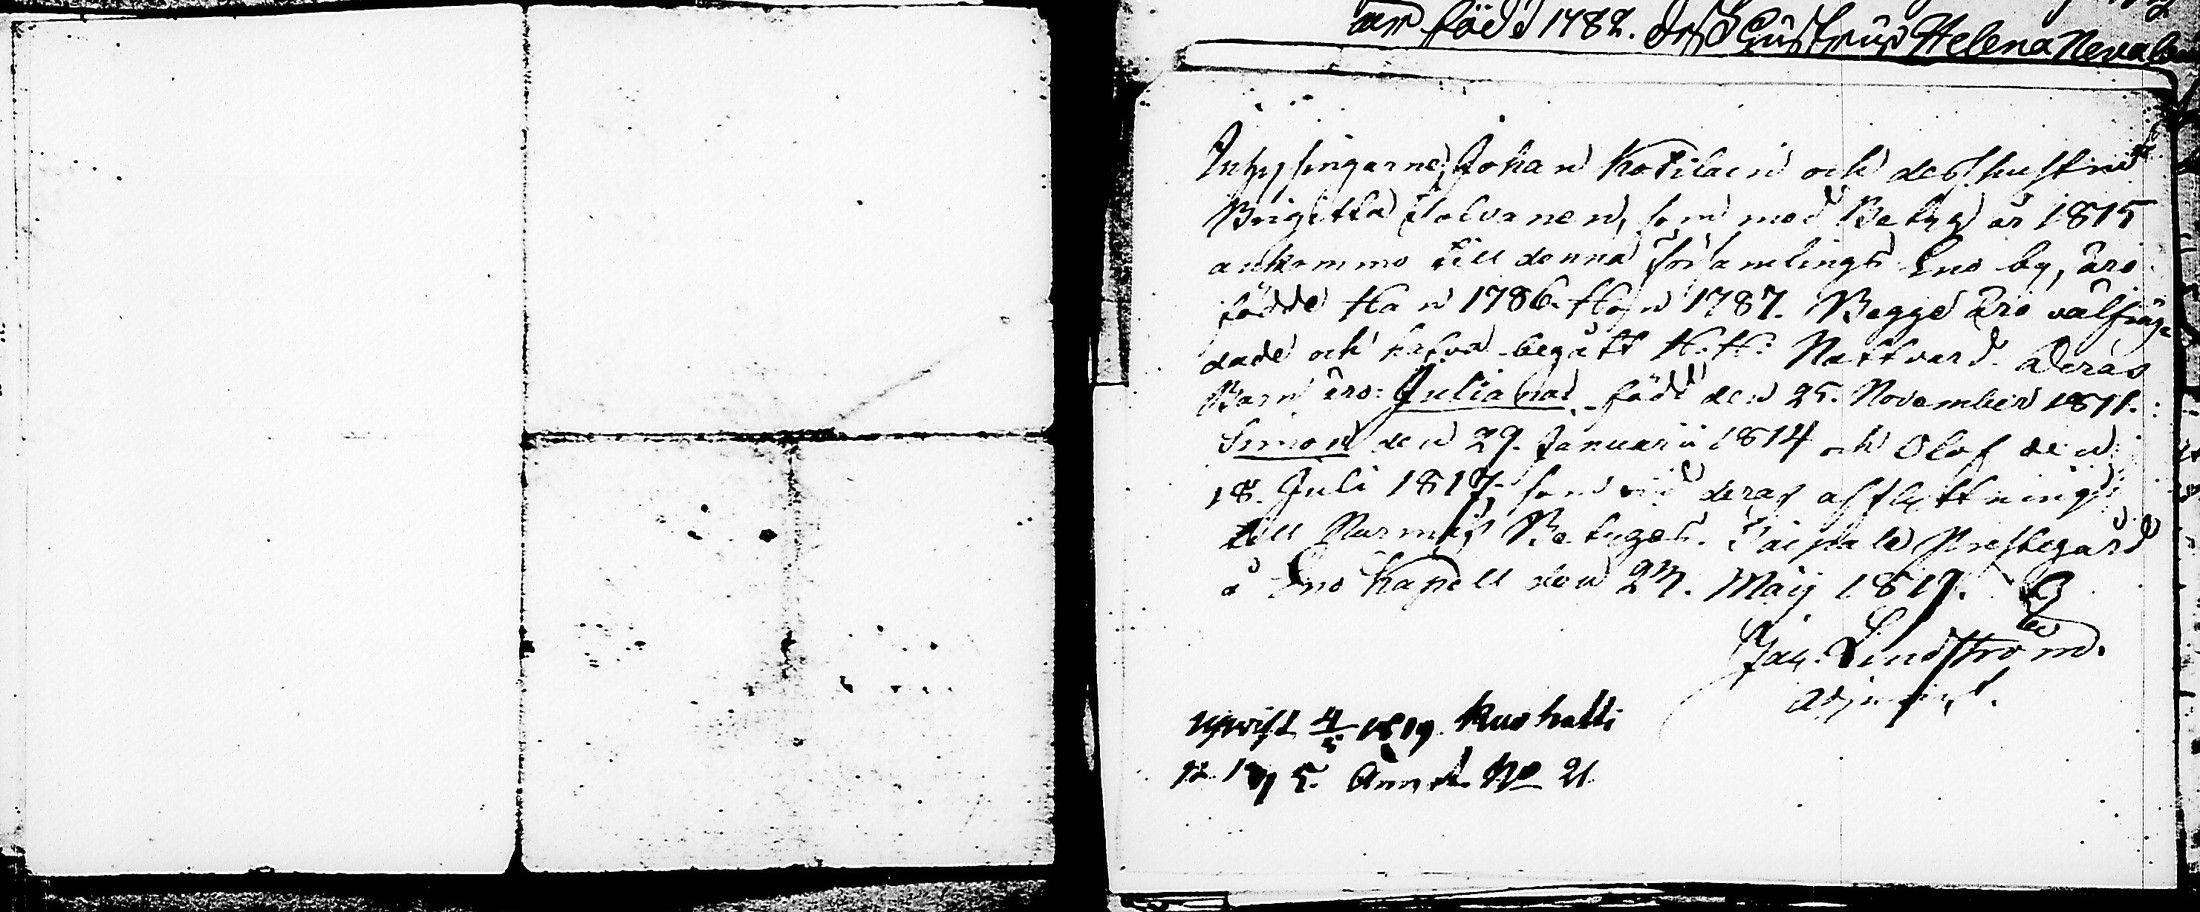 är född 1782. dess Hustrus Helena Neva
Inhysingarne Johan Kotilain och dess hustru
Brigitta Tolvanen, som med Betyg år 1815
ankommo till denna Församlings Eno by, äro
födde Han 1786. Hon 1787. Begge äro välfräg-
dade och hafva begått H. H. Nattvard. Deras
Barn äro: Juliana, född den 25. November 1811.
Simon den 29. Januarii 1814 och Olof den
18. Juli 1817, som vid deras afflyttning
till Nurmis Betygas. Taipale Prestegård
å Eno Kapell den 27. Maij 1819.
Jac. Lindström.
Adjunct.
Uppvist 4/5 1819. Kuohatti
N. 5. Annot. No 21